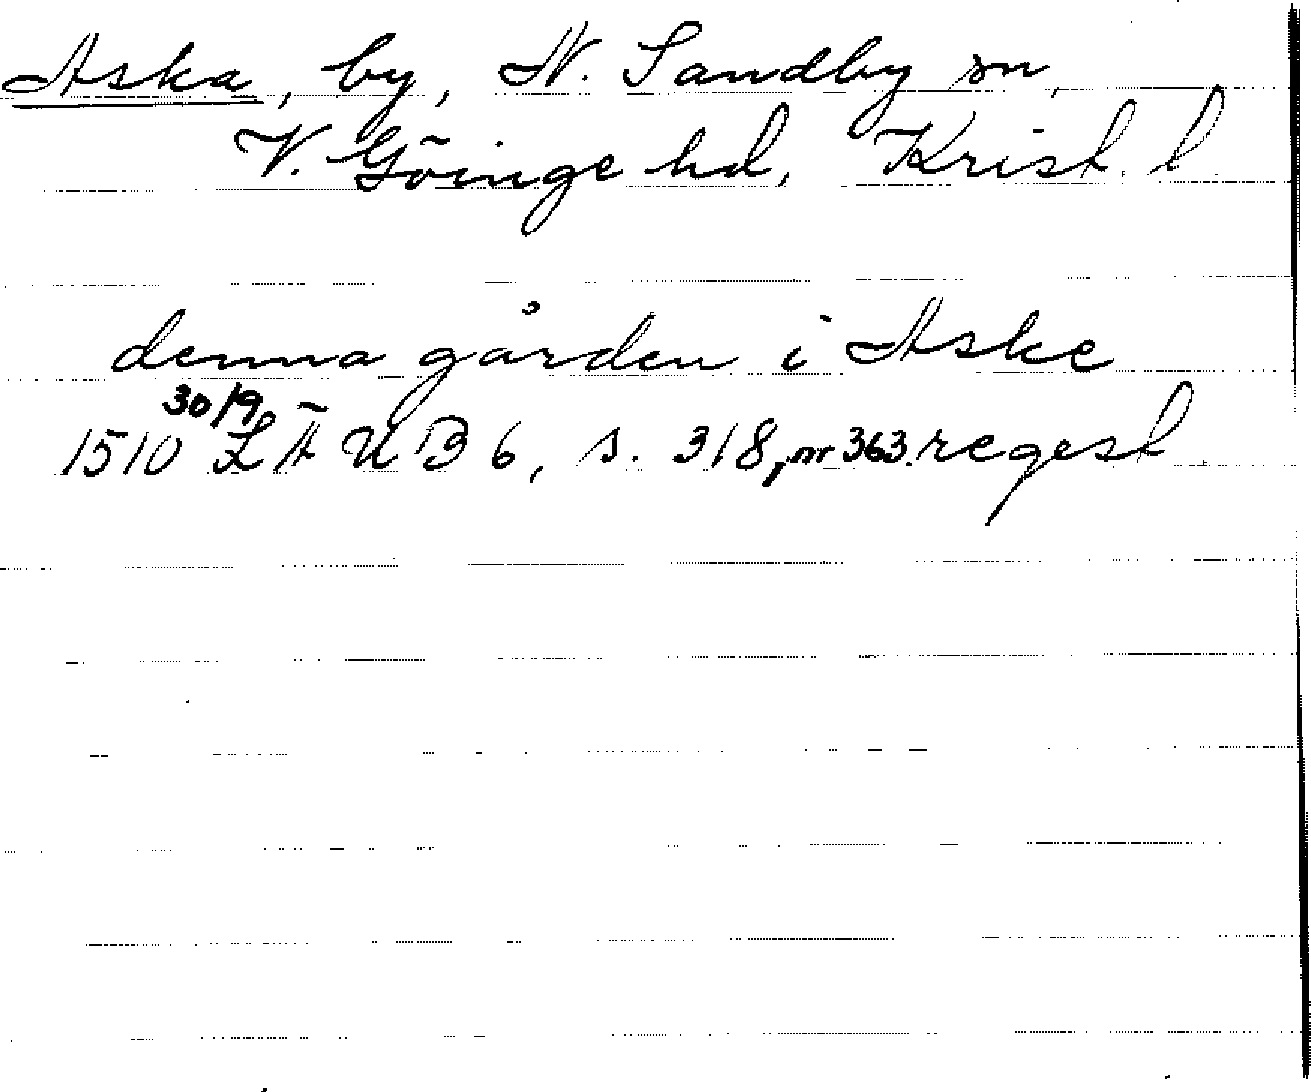 Aska, by, N. Sandby sn,
V. Göinge hd, Krist. l
denna gården i Aske
30/9
1510 LÄUB 6, s. 318, nr 363. regest